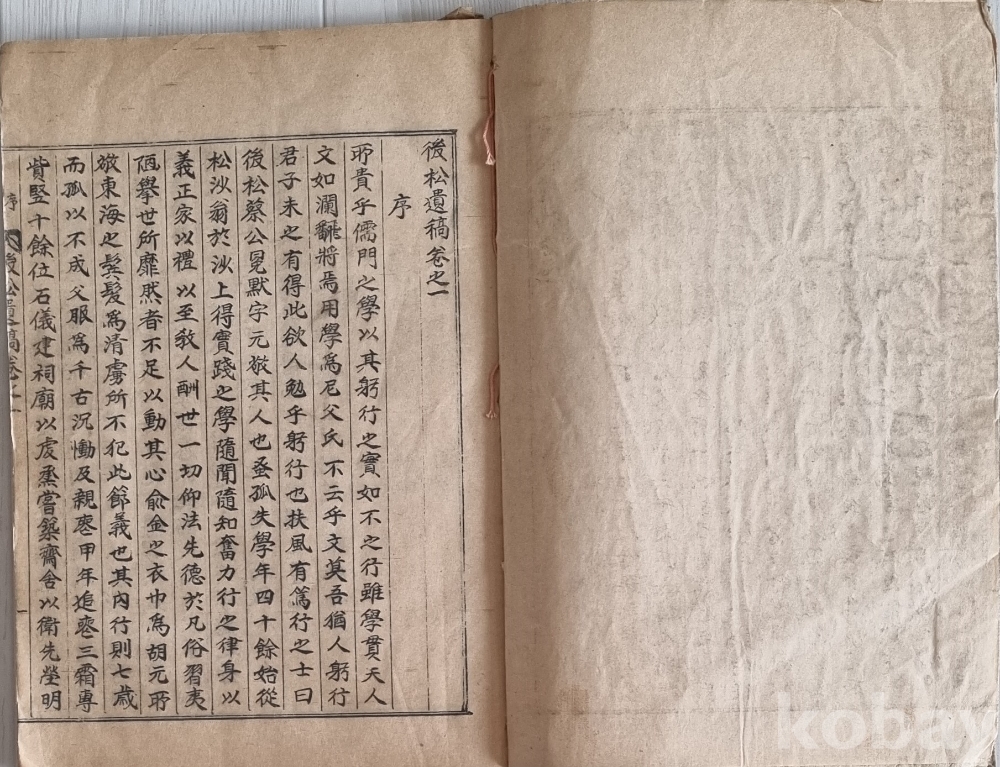 後松遺稿卷之一
序
所貴乎儒門之學以其躬行之實如不之行雖學貫天人
文如瀾飜將焉用學爲尼父氏不云乎文莫吾猶人躬行
君子未之有得此欲人勉乎躬行也扶風有篤行之士曰
後松蔡公冕默字元敬其人也蚤孤失學年四十餘始從
松沙翁於沙上得實踐之學隨聞隨知奮力行之律身以
義正家以禮以至敎人酬世一切仰法先德於凡俗習夷
陋擧世所靡然者不足以動其心兪金之衣巾爲胡元所
敬東海之鬢髮爲清虜所不犯此節義也其內行則七歲
而孤以不成父服爲千古沉慟及親喪甲年追喪三霜專
貲竪十餘位石儀建祠廟以虔烝嘗築齋舍以衛先塋明
序
後松遺稿卷之一
kobay